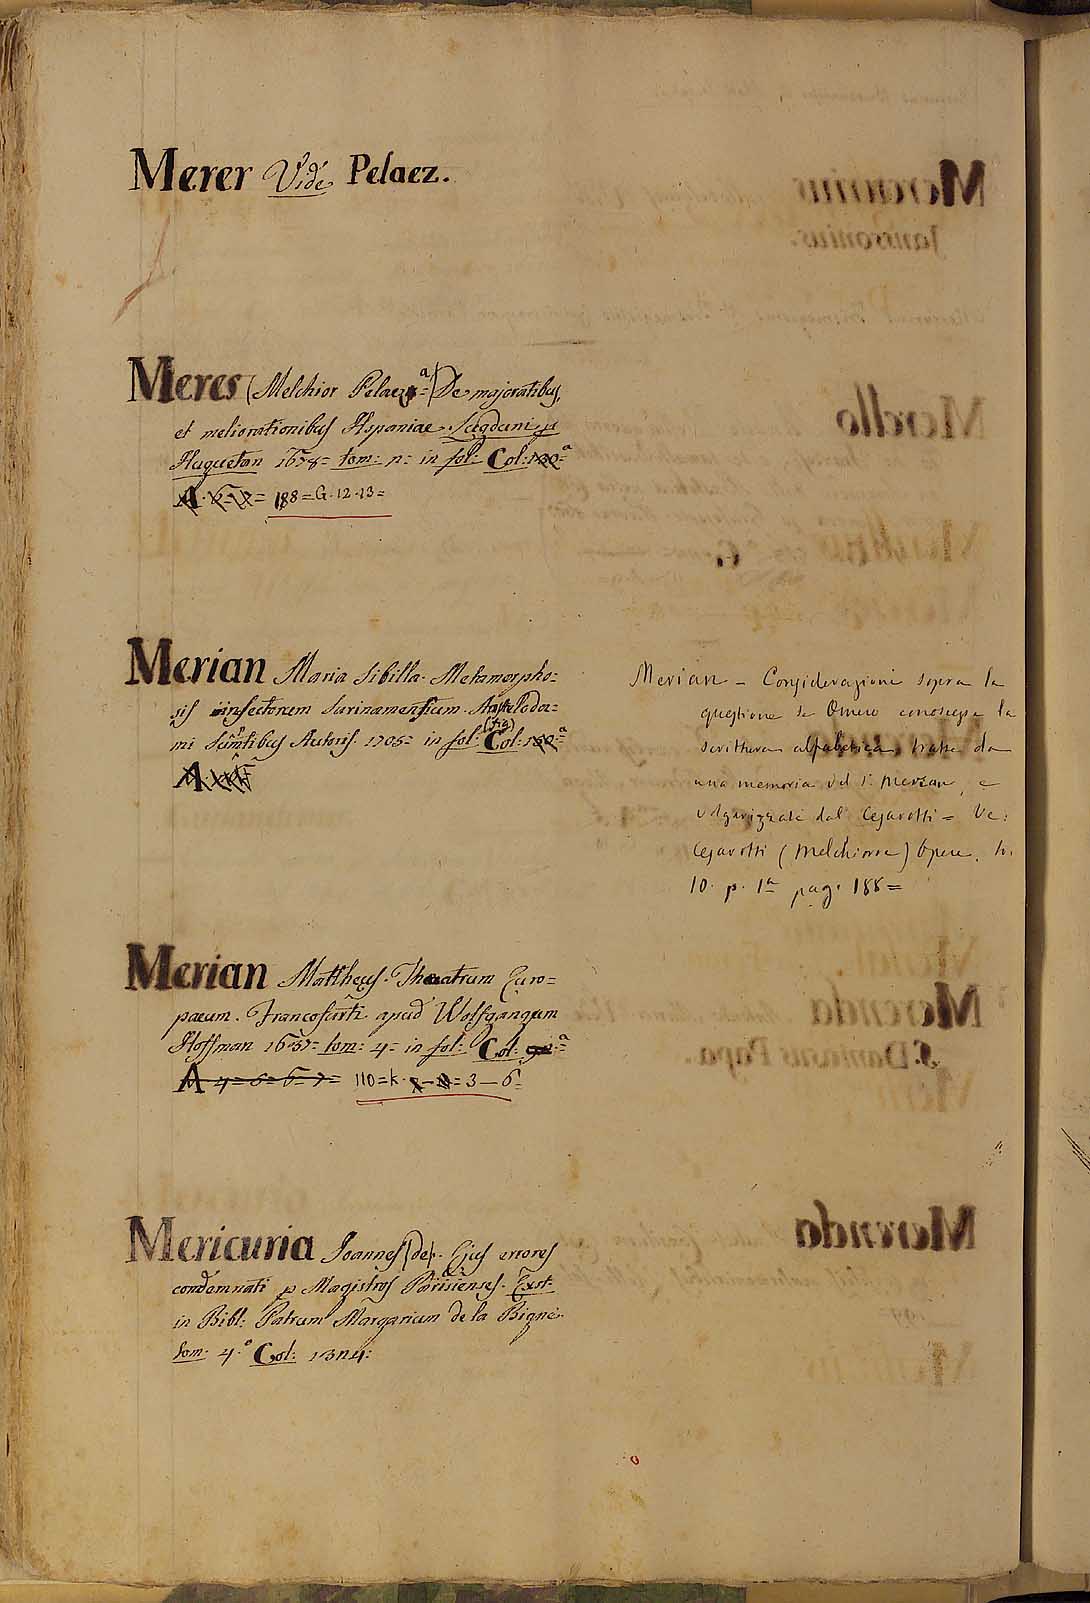 Merer Vide Pelaez.
Meres (Melchior Pelaez a=) De majoratibus,
et meliorationibus Hispaniae. Lugduni p
Huguetan 1678= tom: 2= in fol: Col:
188=G.12.13=
Merian Maria Sibilla. Metamorpho=
sis insectorum Surinamensium. Amsteloda=
mi Sumtibus Autoris. 1705= in fol: Col:
Merian Mattheus. Theatrum Euro=
paeum. Francofurti. apud Wolfgangum
Hoffman 1637= tom: 4= in fol: Col:
A 4=6=6=7= 110=K. =3—6=
Mericuria Joannes (de). Ejus errores
condemnati p Magistros Parisienses. Exst:
in Bibl: Patrum Margarium de la Bigne.
tom. 4.º Col: 1324:
Merian – Considerazioni sopra la
questione se Omero conoscesse la
scrittura alfabetica tratte da
una memoria del S. Merian, e
volgarizzate dal Cesarotti = Ve:
Cesarotti (Melchiorre) Opere, to.
10. p. 1a pag. 188=